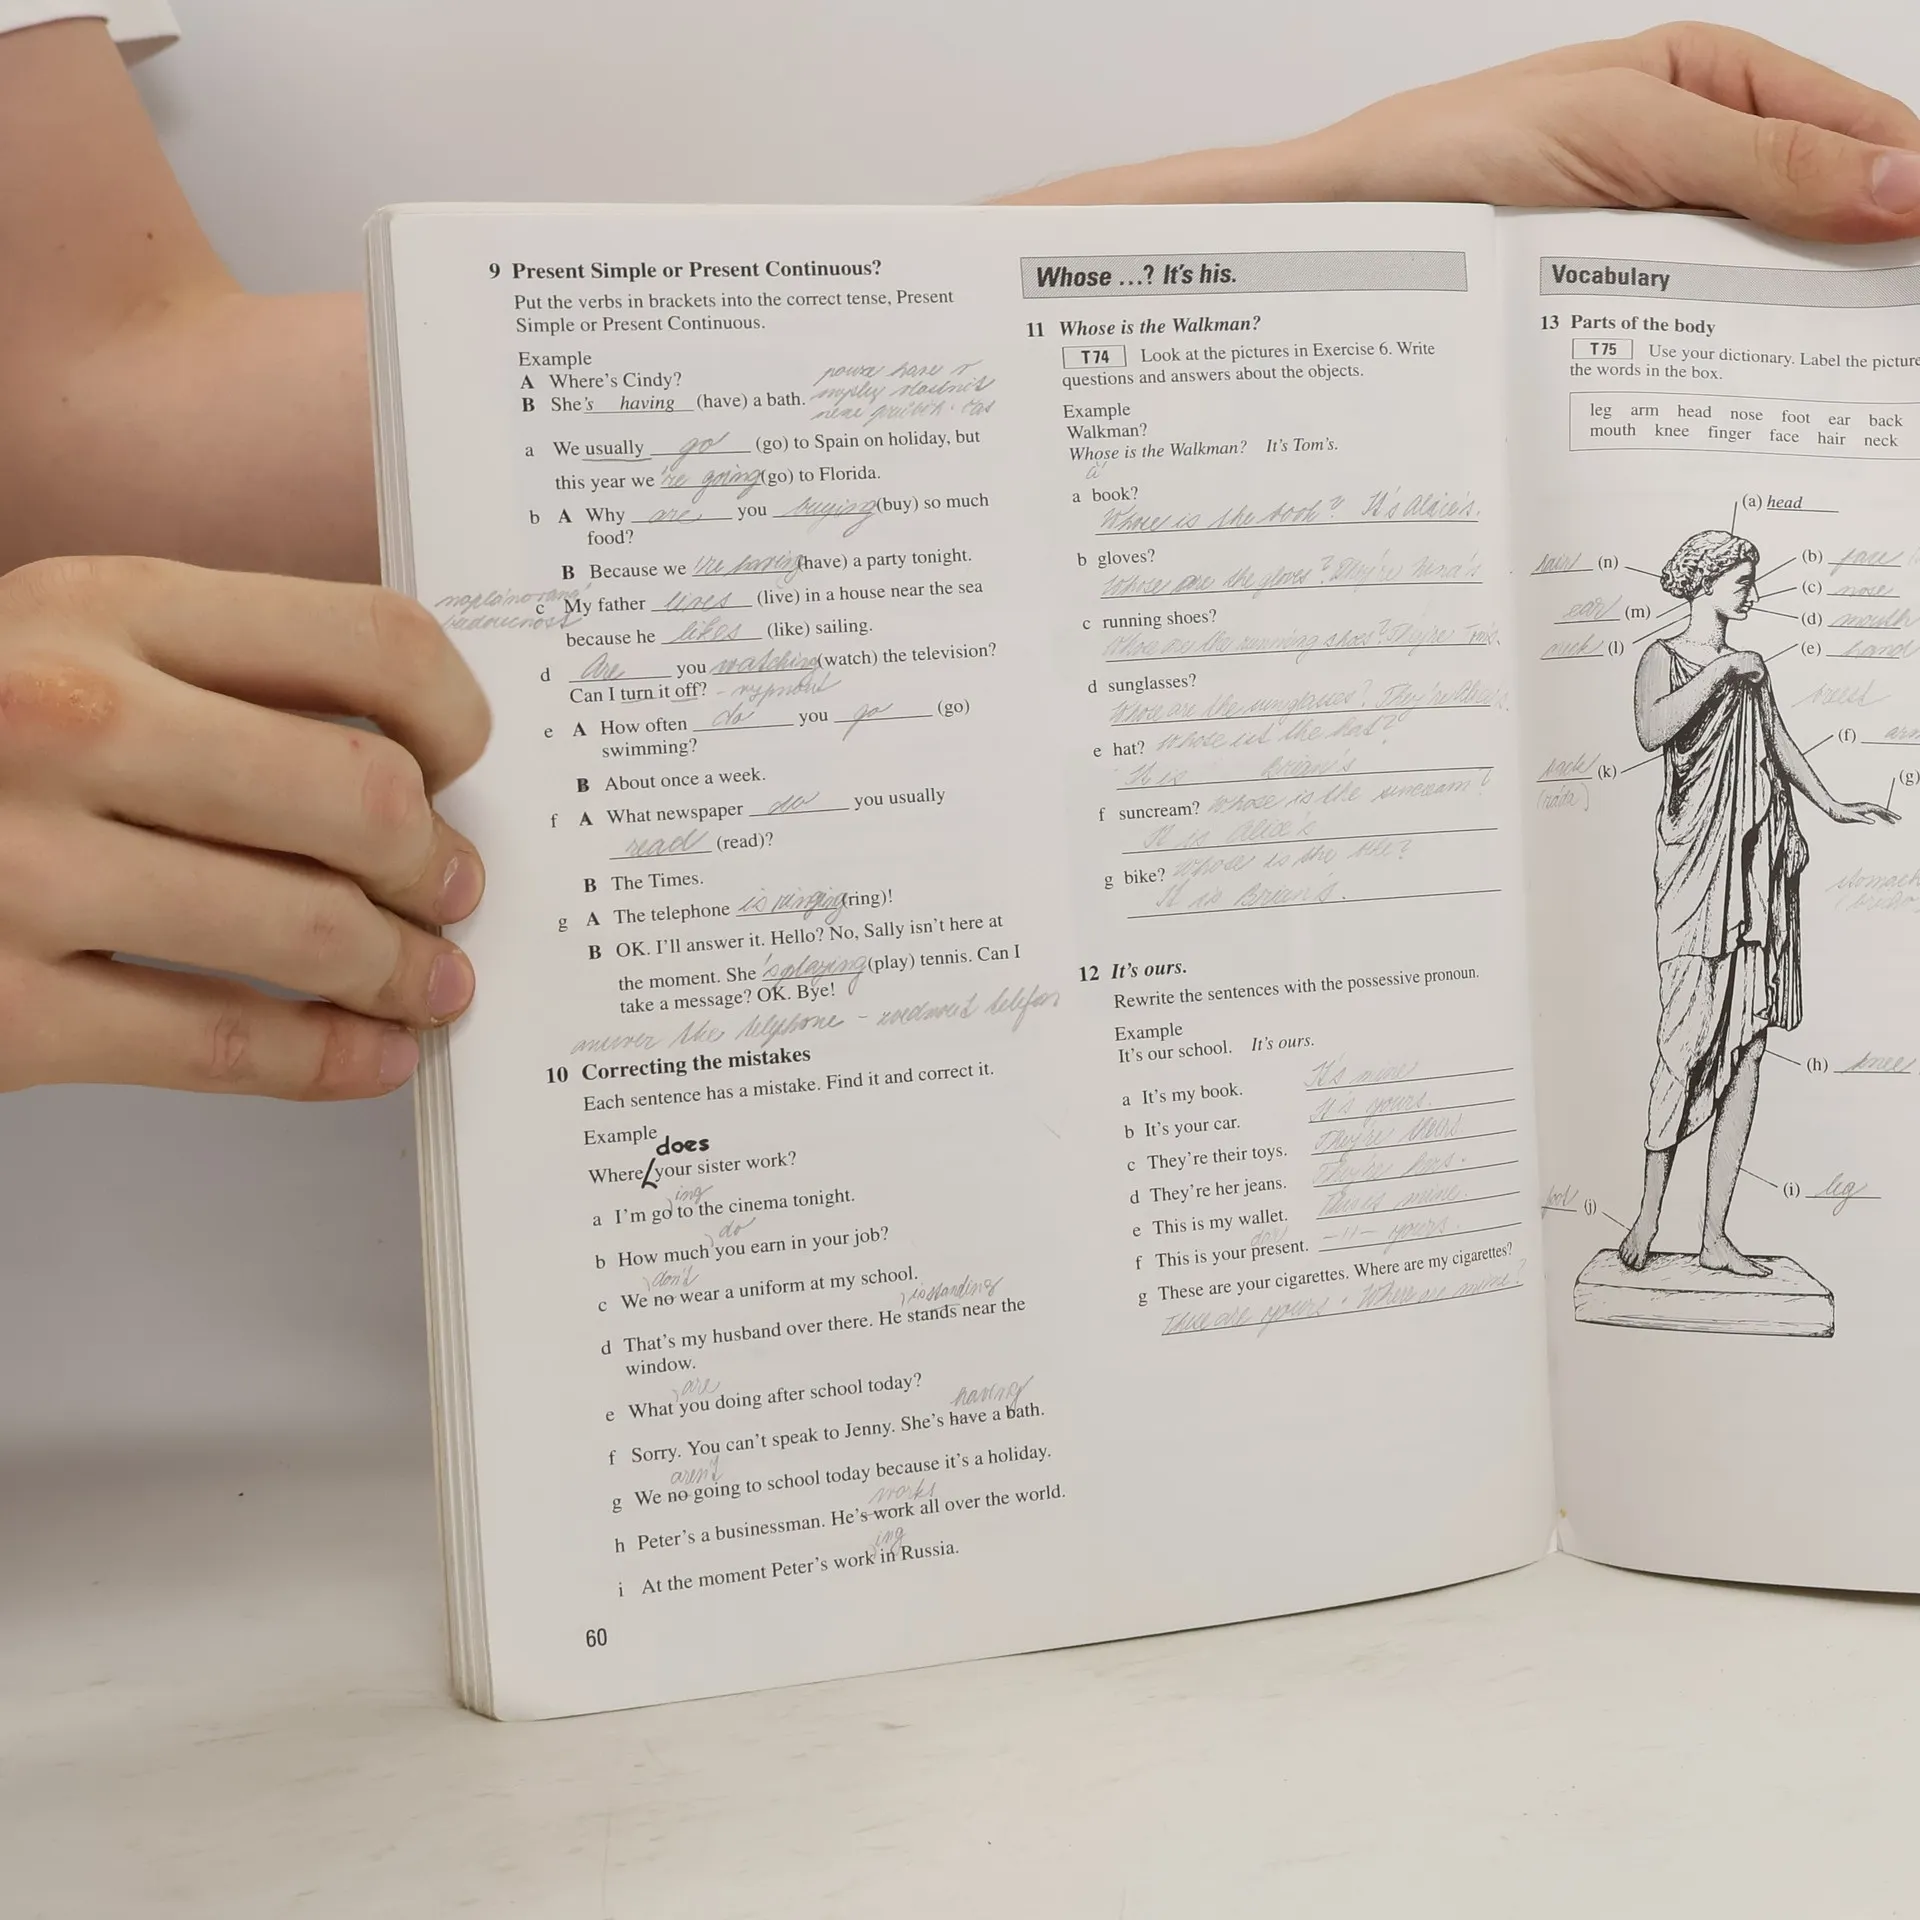 9 Present Simple or Present Continuous?
Put the verbs in brackets into the correct tense, Present
Simple or Present Continuous.
Example
A Where's Cindy?
B She's having (have) a bath.
a We usually go (go) to Spain on holiday, but
this year we 're going (go) to Florida.
b A Why are you buying (buy) so much
food?
B Because we 're having (have) a party tonight.
c My father lives (live) in a house near the sea
because he likes (like) sailing.
d Are you watching (watch) the television?
Can I turn it off? - vypnout
e A How often do you go (go)
swimming?
B About once a week.
f A What newspaper do you usually
read (read)?
B The Times.
g A The telephone is ringing (ring)!
B OK. I'll answer it. Hello? No, Sally isn't here at
the moment. She 's playing (play) tennis. Can I
take a message? OK. Bye!
answer the telephone - zvednout telefon
10 Correcting the mistakes
Each sentence has a mistake. Find it and correct it.
Example
does
Where your sister work?
ing
a I'm go to the cinema tonight.
do
b How much you earn in your job?
don't
c We no wear a uniform at my school.
is standing
d That's my husband over there. He stands near the
window.
are
e What you doing after school today?
having
f Sorry. You can't speak to Jenny. She's have a bath.
aren't
g We no going to school today because it's a holiday.
works
h Peter's a businessman. He's work all over the world.
ing
i At the moment Peter's work in Russia.
60
Whose ...? It's his.
11 Whose is the Walkman?
T 74 Look at the pictures in Exercise 6. Write
questions and answers about the objects.
Example
Walkman?
Whose is the Walkman? It's Tom's.
a book?
Whose is the book? It's Alice's.
b gloves?
Whose are the gloves? They're Nina's
c running shoes?
Whose are the running shoes? They're Tom's.
d sunglasses?
Whose are the sunglasses? They're Alice's.
e hat? Whose is the hat?
It is Brian's
f suncream? Whose is the suncream?
It is Alice's
g bike? Whose is the bike?
It is Brian's.
12 It's ours.
Rewrite the sentences with the possessive pronoun.
Example
It's our school. It's ours.
a It's my book. It's mine
b It's your car. It is yours.
c They're their toys. They're theirs.
d They're her jeans. They're hers.
e This is my wallet. This is mine.
f This is your present. -11- yours.
g These are your cigarettes. Where are my cigarettes?
These are yours. Where are mine?
Vocabulary
13 Parts of the body
T 75 Use your dictionary. Label the picture
the words in the box.
leg arm head nose foot ear back
mouth knee finger face hair neck
(a) head
hair (n)
(b) face
(c) nose
ear (m)
(d) mouth
neck (l)
(e) hand
(f) arm
back (k)
(g)
stomach
(h) knee
(i) leg
foot (j)